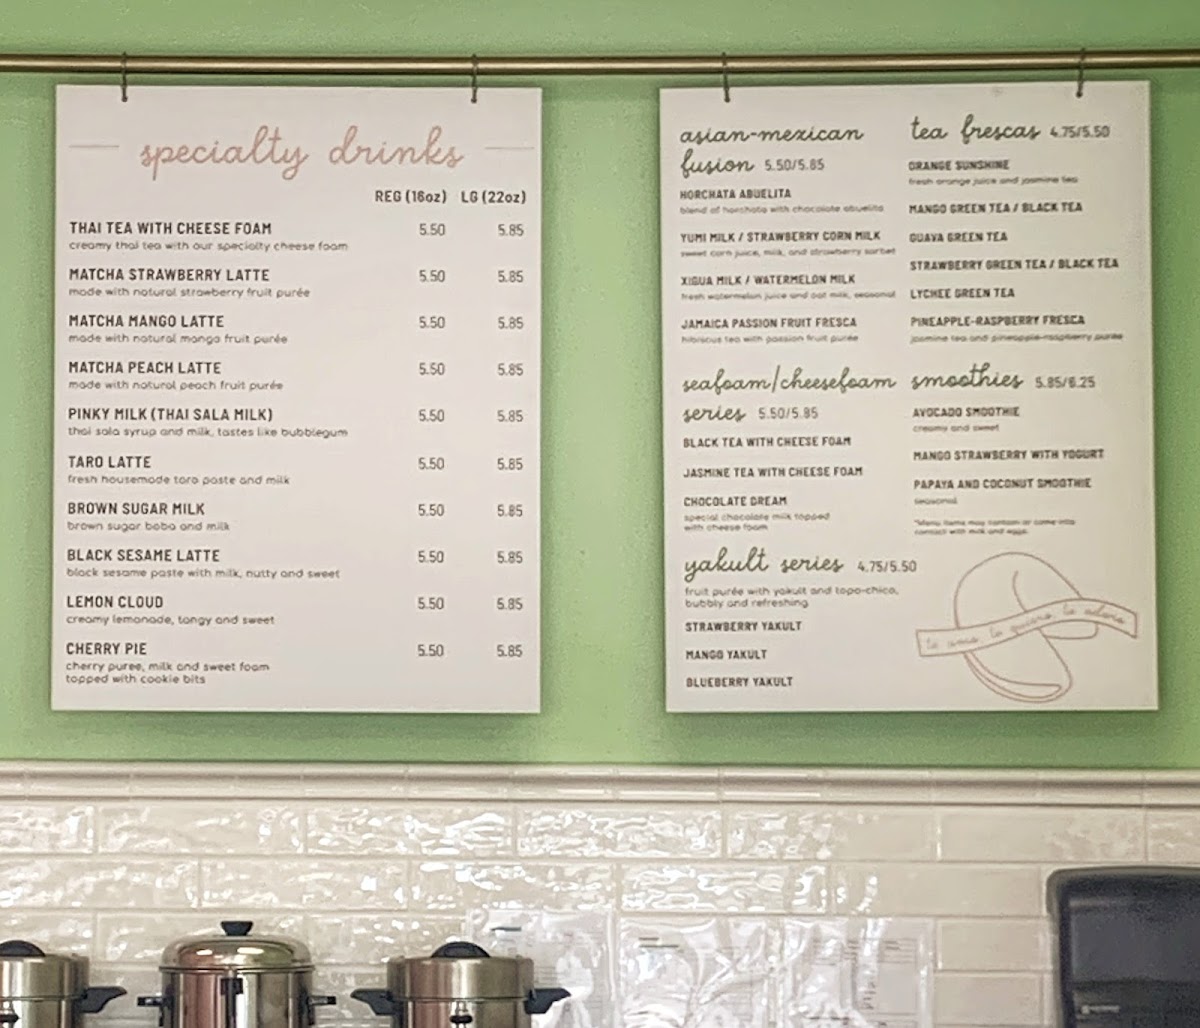 specialty drinks
REG (16oz) LG (22oz)
THAI TEA WITH CHEESE FOAM 5.50 5.85
creamy thai tea with our specialty cheese foam
MATCHA STRAWBERRY LATTE 5.50 5.85
made with natural strawberry fruit purée
MATCHA MANGO LATTE 5.50 5.85
made with natural mango fruit purée
MATCHA PEACH LATTE 5.50 5.85
made with natural peach fruit purée
PINKY MILK (THAI SALA MILK) 5.50 5.85
thai sala syrup and milk, tastes like bubblegum
TARO LATTE 5.50 5.85
fresh housemade taro paste and milk
BROWN SUGAR MILK 5.50 5.85
brown sugar boba and milk
BLACK SESAME LATTE 5.50 5.85
black sesame paste with milk, nutty and sweet
LEMON CLOUD 5.50 5.85
creamy lemonade, tangy and sweet
CHERRY PIE 5.50 5.85
cherry puree, milk and sweet foam
topped with cookie bits
asian-mexican
fusion 5.50/5.85
HORCHATA ABUELITA
blend of horchata with chocolate abuelita
YUMI MILK / STRAWBERRY CORN MILK
sweet corn juice, milk, and strawberry sorbet
XIGUA MILK / WATERMELON MILK
fresh watermelon juice and oat milk, seasonal
JAMAICA PASSION FRUIT FRESCA
hibiscus tea with passion fruit purée
seafoam/cheesefoam
series 5.50/5.85
BLACK TEA WITH CHEESE FOAM
JASMINE TEA WITH CHEESE FOAM
CHOCOLATE DREAM
special chocolate milk topped
with cheese foam
yakult series 4.75/5.50
fruit purée with yakult and topo-chico,
bubbly and refreshing
STRAWBERRY YAKULT
MANGO YAKULT
BLUEBERRY YAKULT
tea frescas 4.75/5.50
ORANGE SUNSHINE
fresh orange juice and jasmine tea
MANGO GREEN TEA / BLACK TEA
GUAVA GREEN TEA
STRAWBERRY GREEN TEA / BLACK TEA
LYCHEE GREEN TEA
PINEAPPLE-RASPBERRY FRESCA
jasmine tea and pineapple-raspberry purée
smoothies 5.85/6.25
AVOCADO SMOOTHIE
creamy and sweet
MANGO STRAWBERRY WITH YOGURT
PAPAYA AND COCONUT SMOOTHIE
seasonal
*Menu items may contain or come into
contact with milk and eggs.
te amo, te quiero, te adoro